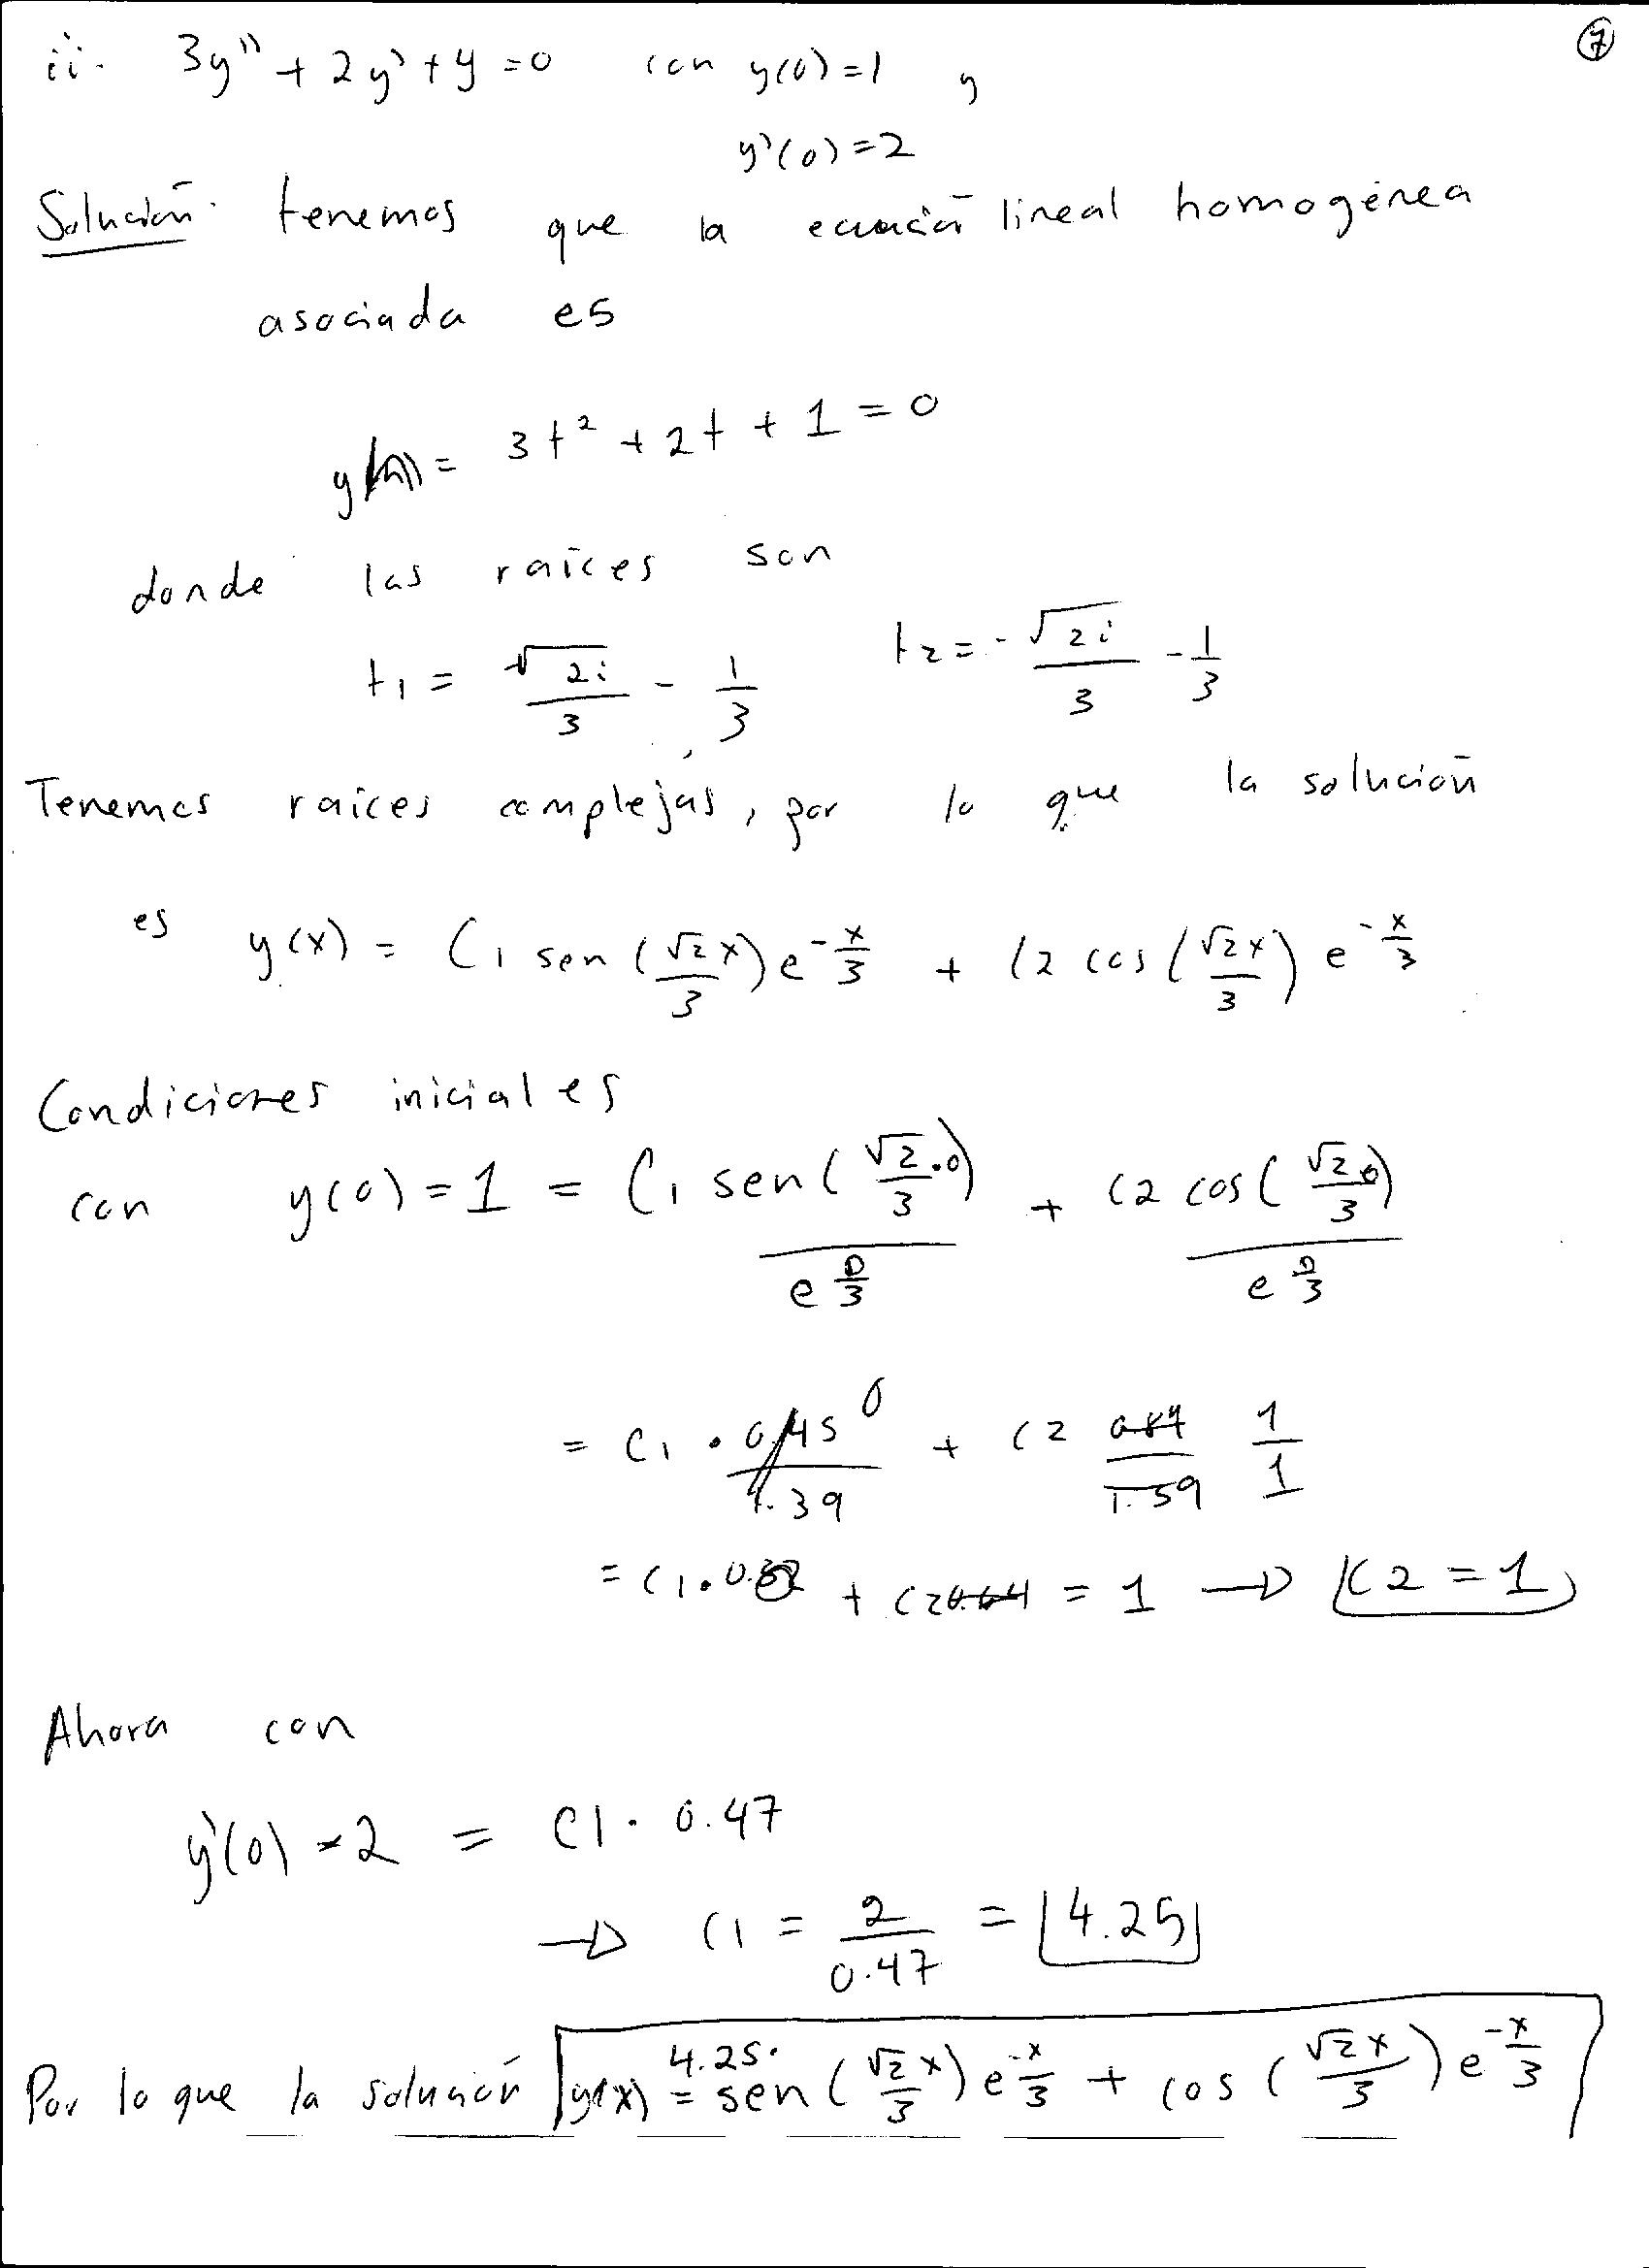 7
ii. 3y'' + 2y' + y = 0 con y(0) = 1 y
y'(0) = 2
Solución. tenemos que la ecuación lineal homogénea
asociada es
3t² + 2t + 1 = 0
donde las raíces son
t1 = √2i/3 - 1/3 t2 = -√2i/3 - 1/3
Tenemos raíces complejas, por lo que la solución
es y(x) = C1 sen(√2x/3) e^(-x/3) + C2 cos(√2x/3) e^(-x/3)
Condiciones iniciales
con y(0) = 1 = C1 sen(√2·0/3)/e^(0/3) + C2 cos(√2·0/3)/e^(0/3)
= C1 · 0 + C2 1/1
= C1 · 0 + C2 = 1 → C2 = 1
Ahora con
y'(0) = 2 = C1 · 0.47
→ C1 = 2/0.47 = 4.25
Por lo que la solución y(x) = 4.25 · sen(√2x/3) e^(-x/3) + cos(√2x/3) e^(-x/3)